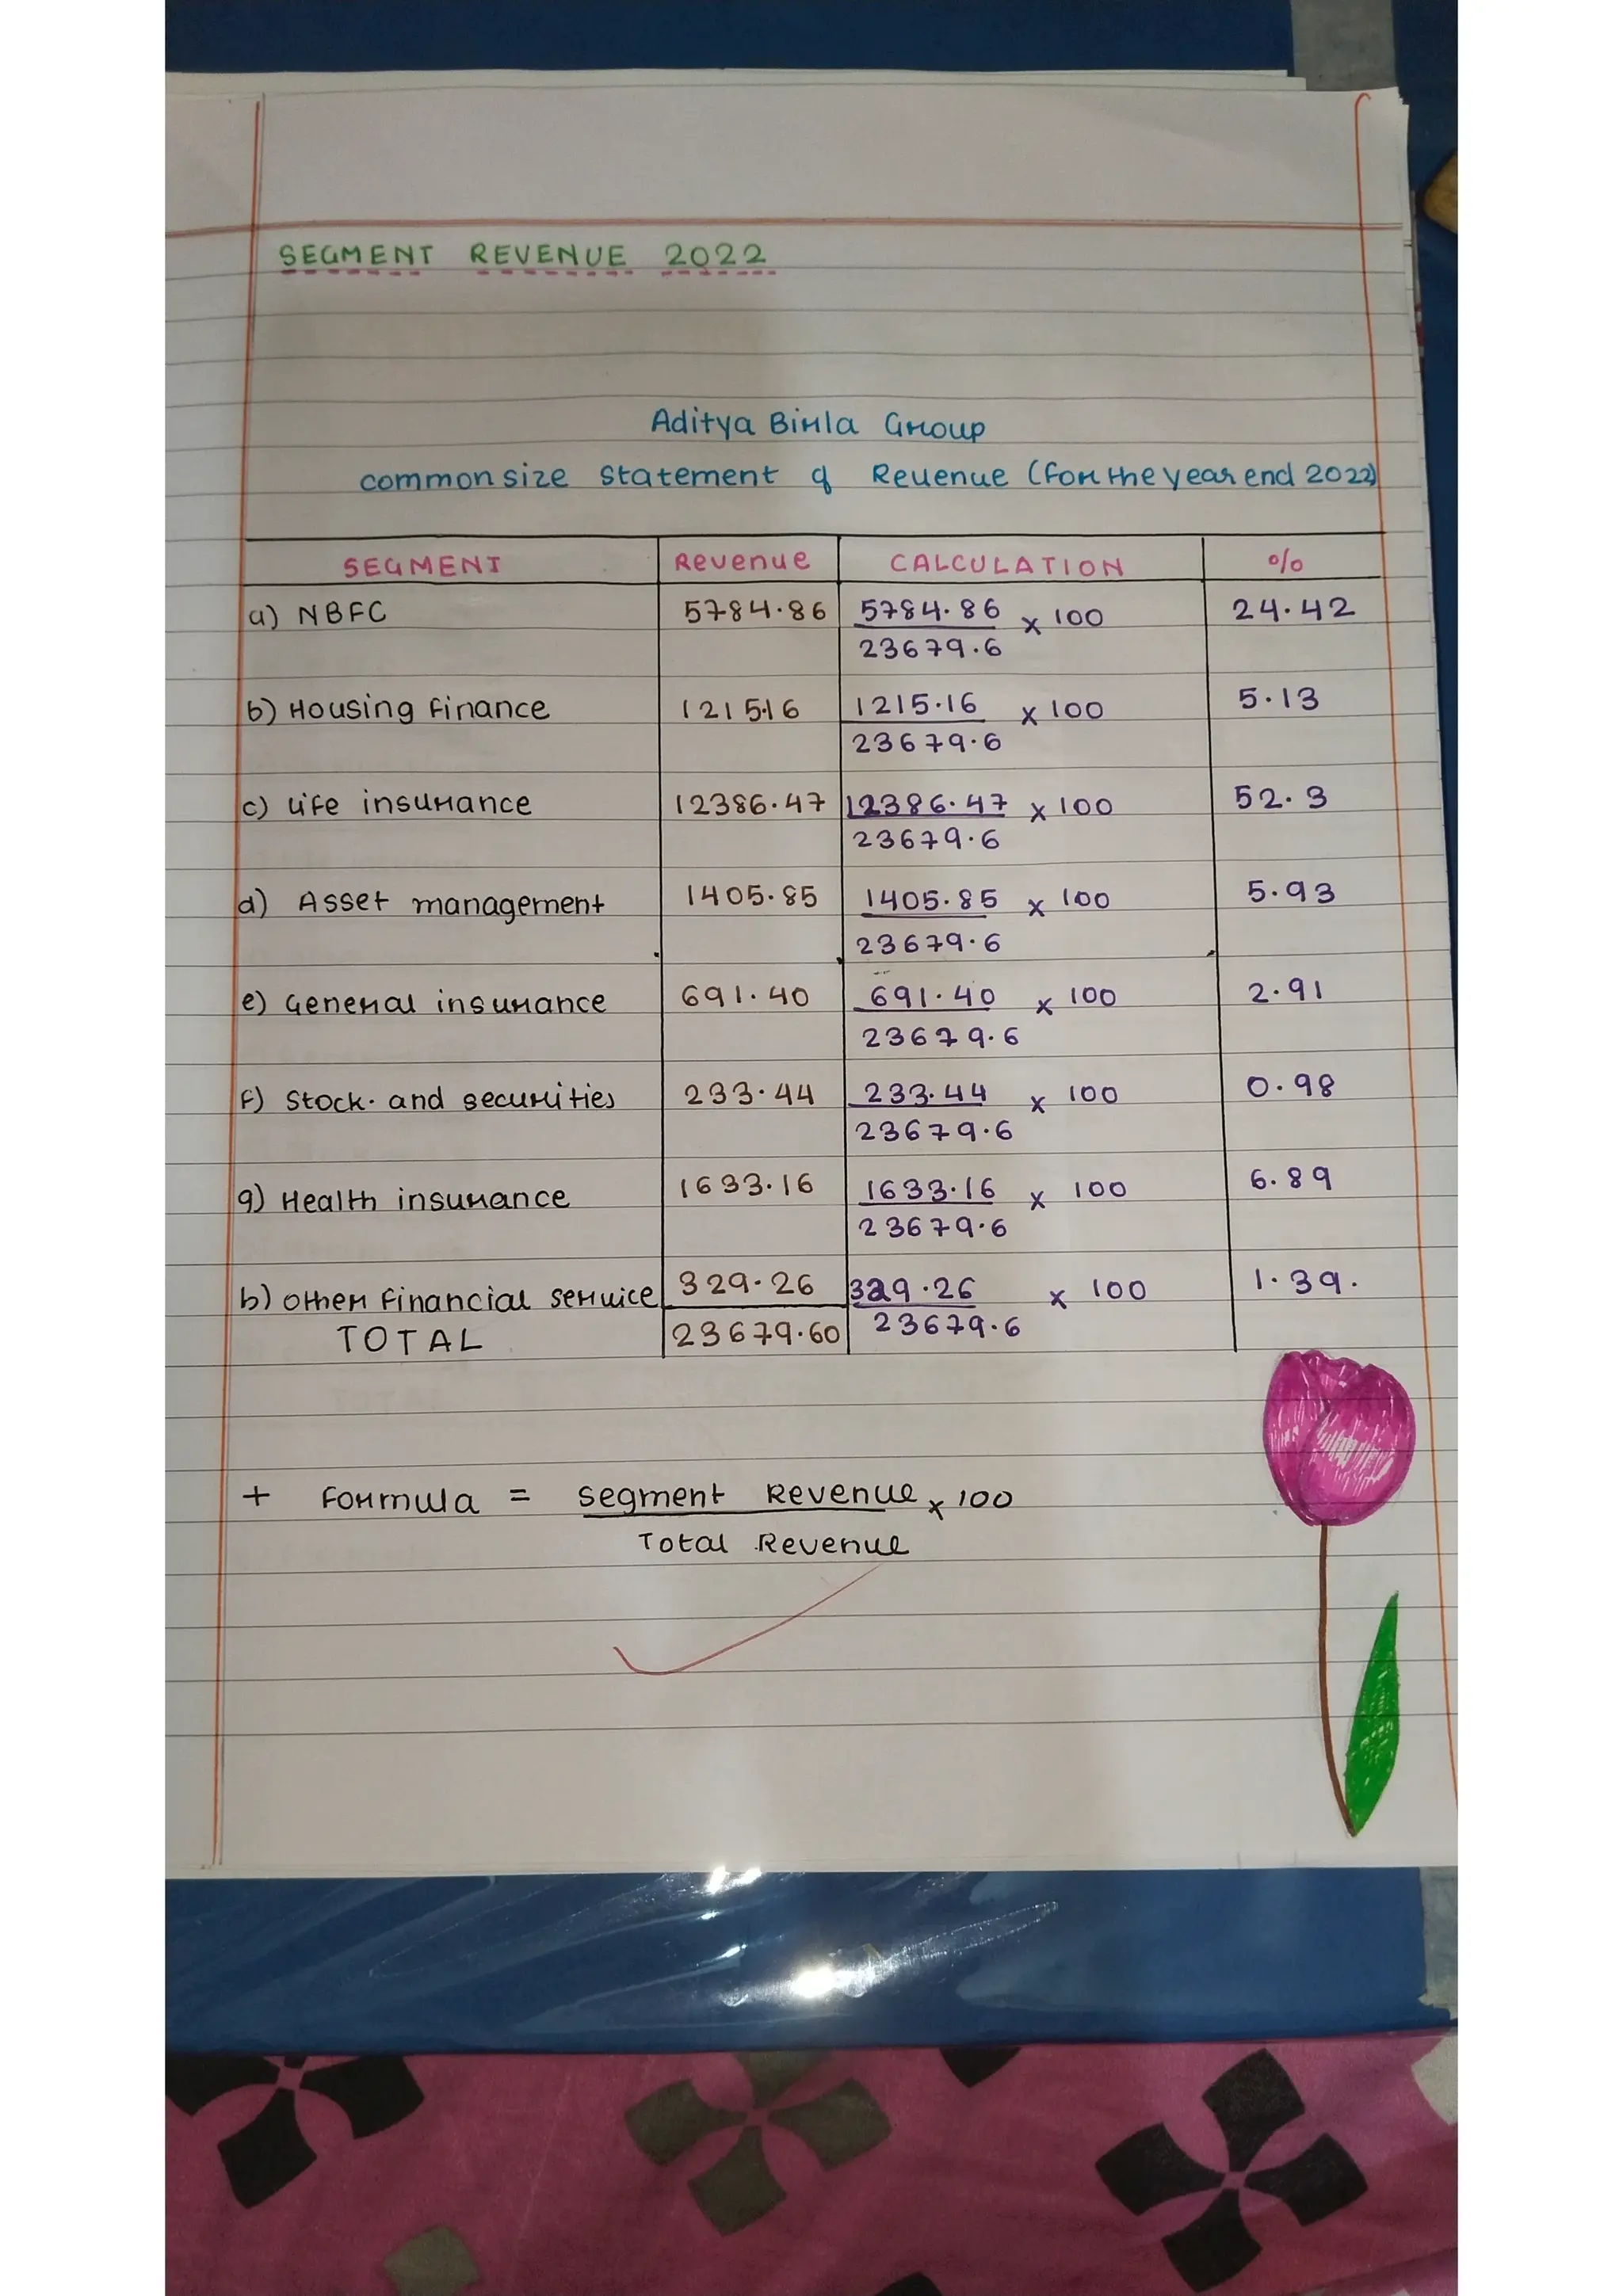 SEGMENT REVENUE 2022
Aditya Birla Group
common size statement of Revenue (for the year end 2022)
SEGMENT Revenue CALCULATION %
a) NBFC 5784.86 5784.86 x 100 24.42
23679.6
b) Housing finance 1215.16 1215.16 x 100 5.13
23679.6
c) Life insurance 12386.47 12386.47 x 100 52.3
23679.6
d) Asset management 1405.85 1405.85 x 100 5.93
23679.6
e) General insurance 691.40 691.40 x 100 2.91
23679.6
f) Stock. and securities 233.44 233.44 x 100 0.98
23679.6
g) Health insurance 1633.16 1633.16 x 100 6.89
23679.6
b) other financial service 329.26 329.26 x 100 1.39.
TOTAL 23679.60 23679.6
+ Formula = segment Revenue x 100
Total Revenue